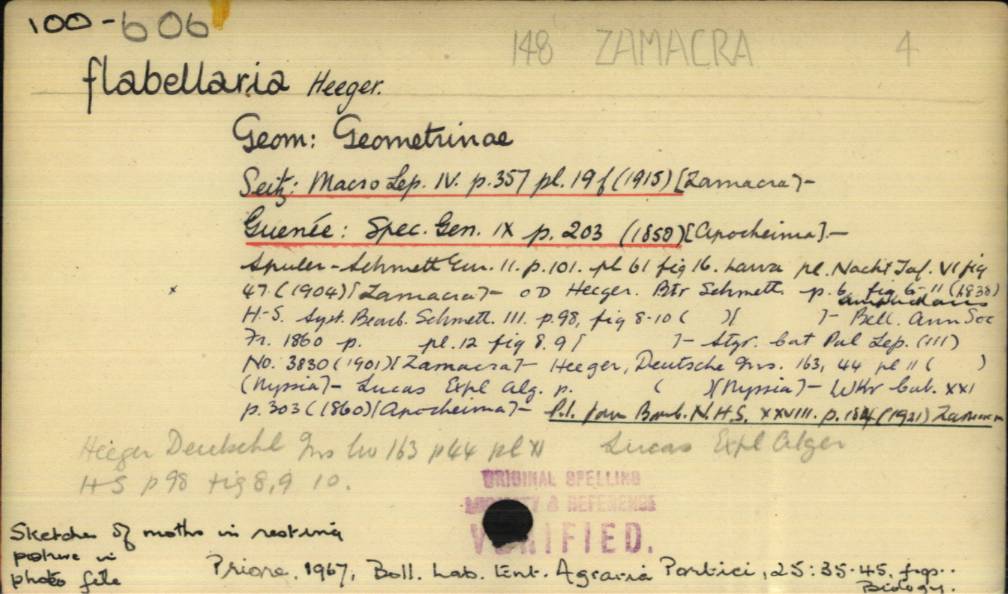 100-606
148 ZAMACRA 4
flabellaria Heeger.
Geom: Geometrinae
Seitz: Macro Lep. IV. p.357 pl. 19f (1915) [Zamacra]-
Guenée: Spec. Gen. IX p. 203 (1858) [Apocheima].-
Spuler-Schmett Eur. 11. p.101. pl 61 fig 16. Larva pl. Nacht Taf. VI fig
x 47. (1904) [Zamacra]- OD Heeger. Btr Schmett. p.6. fig 6-11 (1838)
H-S. Syst. Bearb. Schmett. III. p.98, fig 8-10 ( )[ ]- Bell. Ann Soc
Fr. 1860 p. pl.12 fig 8.9 [ ]- Stgr. Cat Pal Lep. (III)
No. 3830 (1901) [Zamacra]- Heeger, Deutsche Ins. 163, 44 pl 11 ( )
(Nyssia]- Lucas Expl Alg. p. ( )[Nyssia]- Wkr Cat. XXI
p.303 (1860) [Apocheima]- Jour Bomb. N.H.S. XXVIII. p.184 (1921) Zamacra
Heeger Deutschl Ins 163 p44 pl XI Lucas Expl Alger
H-S p98 fig 8,9 10.
ORIGINAL SPELLING
& REFERENCE
VERIFIED.
Sketches of moths in resting
posture in
photo file
Priore, 1967, Boll. Lab. Ent. Agraria Portici, 25:35-45, figs..
Biology.